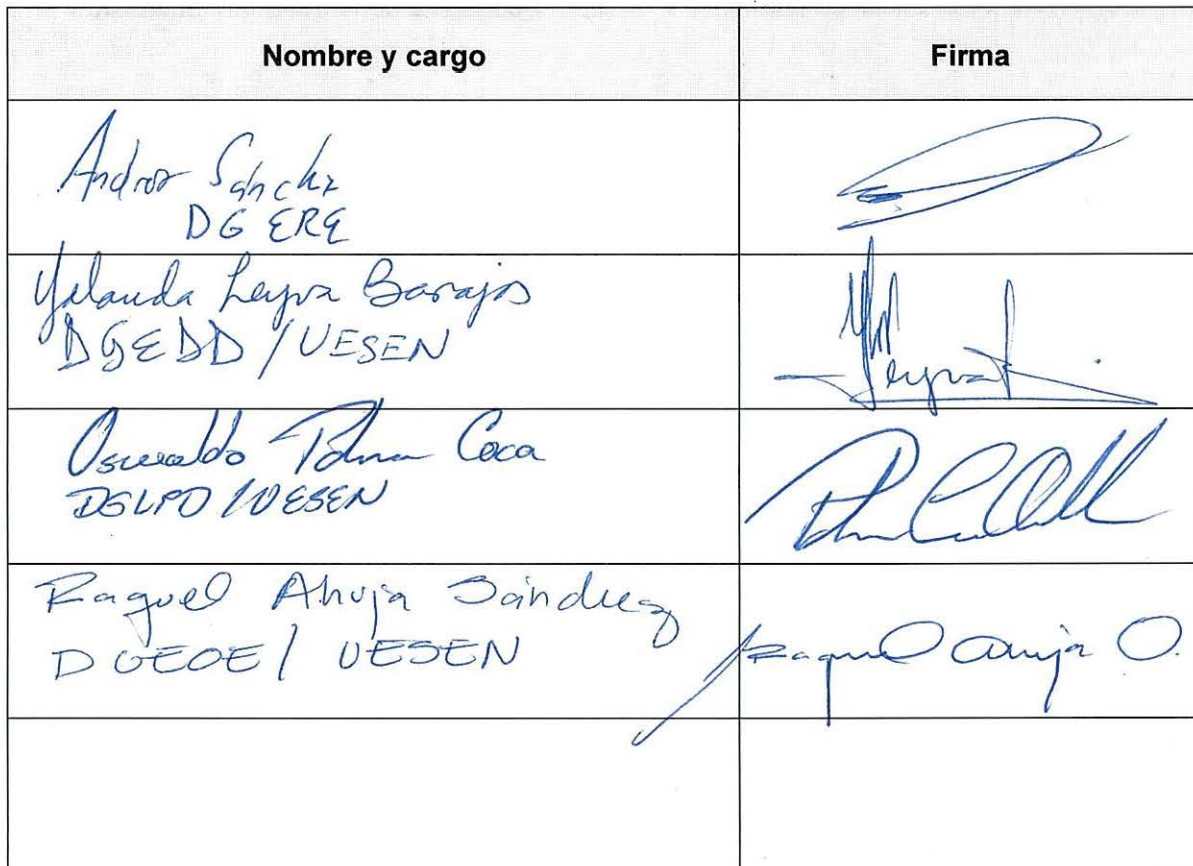 Nombre y cargo Firma
Andrés Sánchez
DG ERE
Yolanda Leyva Barajas
DGEDD / UESEN
Leyva
Oswaldo Palma Coca
DGLPD / UESEN
Raquel Ahuja Sánchez
DGEOE / UESEN
Raquel Ahuja